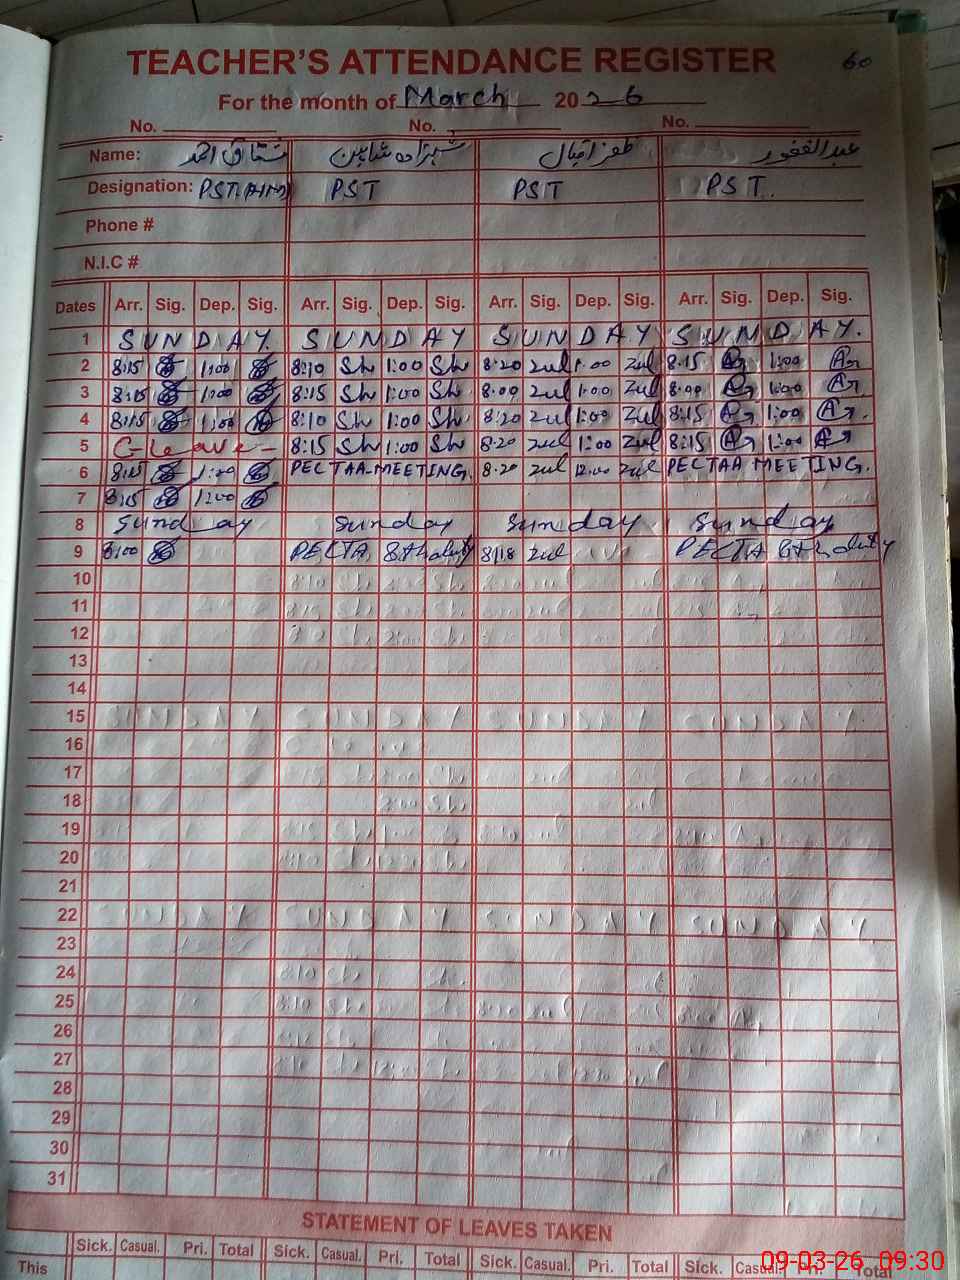 TEACHER'S ATTENDANCE REGISTER 60
For the month of March 2026
No. No. No.
Name: مشتاق احمد شہزادہ شاہین ظفر اقبال عبدالغفور
Designation: PST(HM) PST PST PST.
Phone #
N.I.C #
Dates Arr. Sig. Dep. Sig. Arr. Sig. Dep. Sig. Arr. Sig. Dep. Sig. Arr. Sig. Dep. Sig.
1 SUNDAY. SUNDAY SUNDAY SUNDAY.
2 8:15 1:00 8:10 Sh 1:00 Sh 8:20 Zul 1:00 Zul 8:15 1:00
3 8:15 1:00 8:15 Sh 1:00 Sh 8:00 Zul 1:00 Zul 8:00 1:00
4 8:15 1:00 8:10 Sh 1:00 Sh 8:20 Zul 1:00 Zul 8:15 1:00
5 C-Leave- 8:15 Sh 1:00 Sh 8:20 Zul 1:00 Zul 8:15 1:00
6 8:15 1:00 PECTAA MEETING. 8:20 Zul 12:00 Zul PECTAA MEETING.
7 8:15 1:00
8 Sunday Sunday Sunday Sunday
9 8:00 PECTA 8th duty 8:18 Zul PECTA 8th duty
10
11
12
13
14
15 SUNDAY SUNDAY SUNDAY SUNDAY
16
17
18
19
20
21
22 SUNDAY SUNDAY SUNDAY SUNDAY
23
24
25
26
27
28
29
30
31
STATEMENT OF LEAVES TAKEN
Sick. Casual. Pri. Total Sick. Casual. Pri. Total Sick. Casual. Pri. Total Sick. Casual. Pri. Total
This
09-03-26 09:30